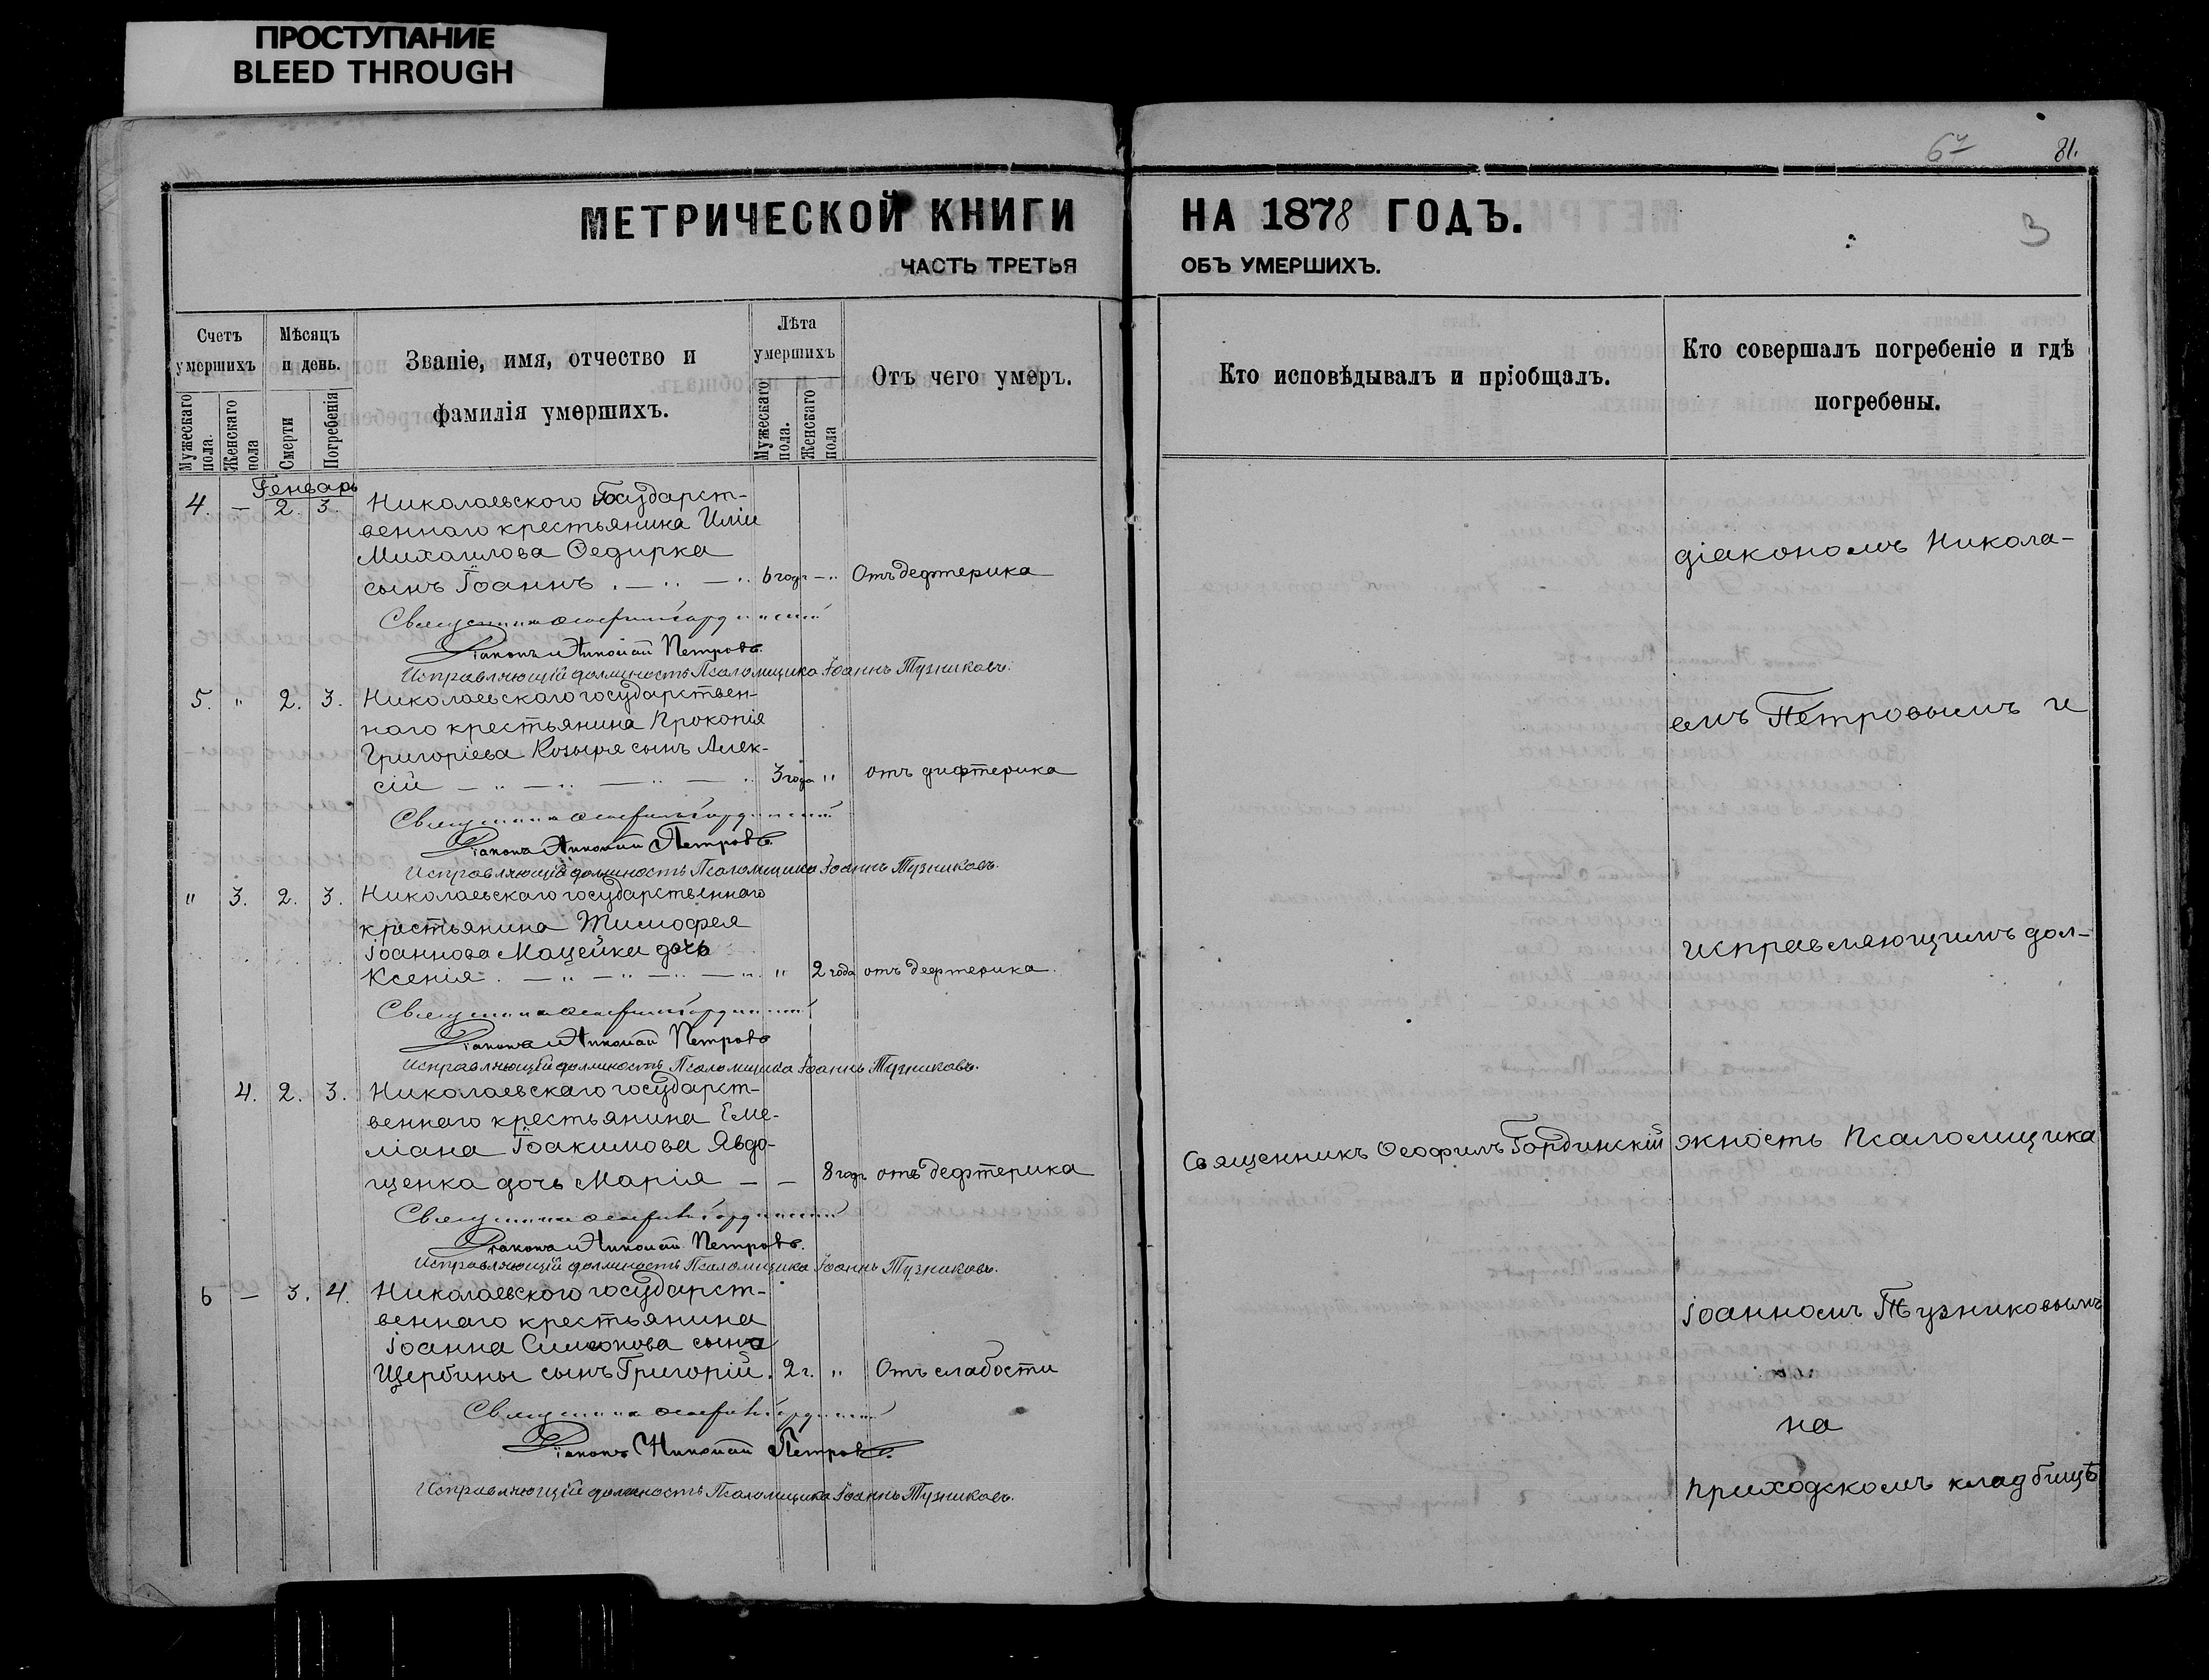 ПРОСТУПАНИЕ
BLEED THROUGH
81.
3
МЕТРИЧЕСКОЙ КНИГИ НА 1878 ГОДЪ.
ЧАСТЬ ТРЕТЬЯ ОБЪ УМЕРШИХЪ.
Счетъ умершихъ
Мужескаго пола.
Женскаго пола
Мѣсяцъ и день.
Смерти
Погребенія
Званіе, имя, отчество и
фамилія умершихъ.
Лѣта умершихъ
Мужескаго пола.
Женскаго пола
Отъ чего умеръ.
Кто исповѣдывалъ и пріобщалъ.
Кто совершалъ погребеніе и гдѣ
погребены.
Генварь
4. — 2. 3. Николаевского Государст-
веннаго крестьянина Иліи
Михаилова Федирка
сынъ Іоаннъ 6 годъ Отъ дефтерика
Діаконъ Николай Петровъ.
Исправляющій должность Псаломщика Іоаннъ Тузниковъ.
5. " 2. 3. Николаевскаго государствен-
наго крестьянина Прокопія
Григоріева Козыря сынъ Алек-
сій 3 года " отъ дифтерика
Діаконъ Николай Петровъ.
Исправляющій должность Псаломщика Іоаннъ Тузниковъ.
" 3. 2. 3. Николаевскаго государственнаго
крестьянина Тимофея
Іоаннова Мацейка дочь
Ксенія " 2 года отъ дефтерика.
Діаконъ Николай Петровъ
Исправляющій должность Псаломщика Іоаннъ Тузниковъ.
4. 2. 3. Николаевскаго государст-
веннаго крестьянина Еме-
ліана Іоакимова Явдо-
щенка дочь Марія — — 8 годъ отъ дефтерика
Діаконъ Николай Петровъ.
Исправляющій должность Псаломщика Іоаннъ Тузниковъ.
6 — 3. 4. Николаевского государст-
веннаго крестьянина
Іоанна Симеонова сына
Щербины сынъ Григорій. 2 г. " Отъ слабости
Діаконъ Николай Петровъ.
Исправляющій должность Псаломщика Іоаннъ Тузниковъ.
Священникъ Феофилъ Гордынскій
діакономъ Никола-
емъ Петровымъ и
исправляющимъ дол-
жность Псаломщика
Іоанномъ Тузниковымъ
на
приходскомъ кладбищѣ